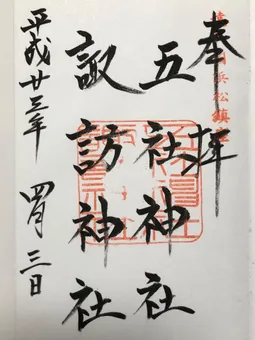 奉拝
五社神社
諏訪神社
平成廿三年 四月三日